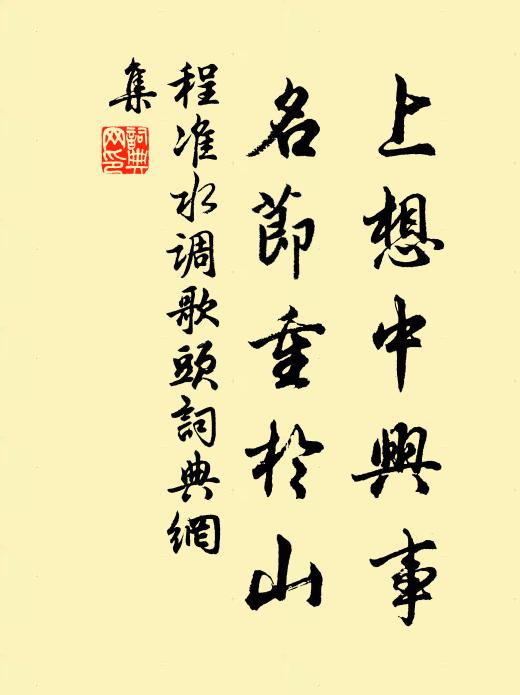 上想中興事
名節重於山
程准水调歌頭詞典網
集
詞典
网印